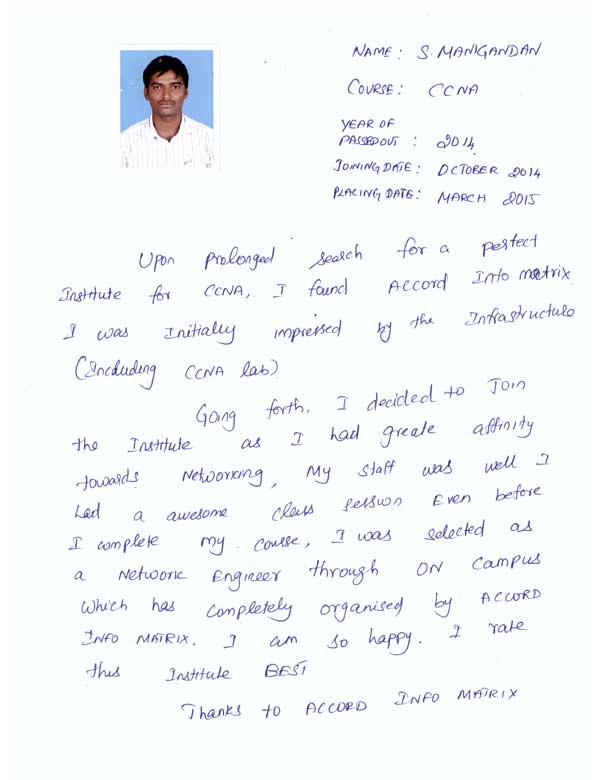 NAME: S. MANIGANDAN
COURSE: CCNA
YEAR OF
PASSEDOUT: 2014
JOINING DATE: OCTOBER 2014
PLACING DATE: MARCH 2015
Upon prolonged search for a perfect
Institute for CCNA, I found Accord Info matrix
I was Initially impressed by the Infrastructure
(Including CCNA lab)
Going forth, I decided to Join
the Institute as I had greate affinity
towards Networking, My staff was well I
had a awesome class session Even before
I complete my course, I was selected as
a Network Engineer through ON Campus
which has completely organised by ACCORD
INFO MATRIX. I am so happy. I rate
this Institute BEST
Thanks to ACCORD INFO MATRIX